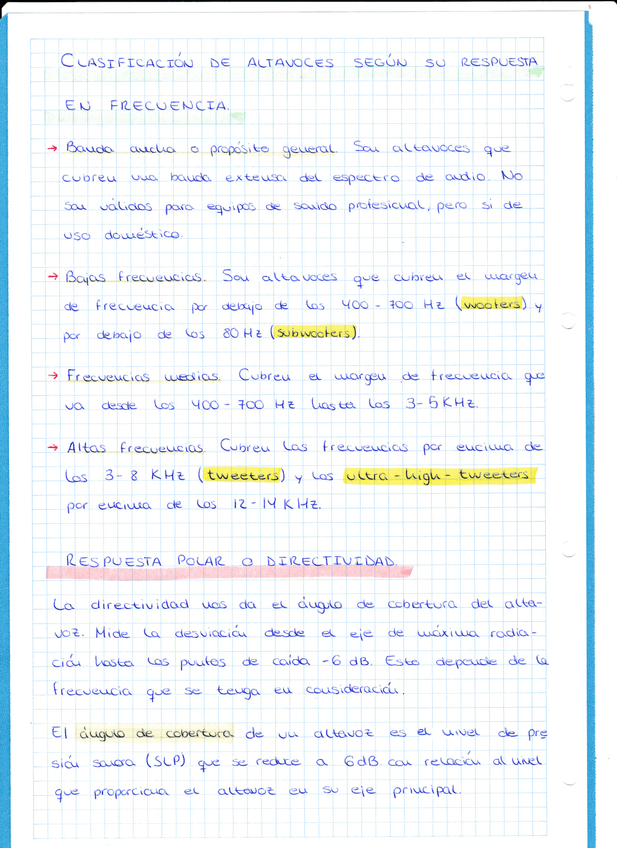 CLASIFICACIÓN DE ALTAVOCES SEGÚN SU RESPUESTA
EN FRECUENCIA.
→ Banda ancha o propósito general. Son altavoces que
cubren una banda extensa del espectro de audio. No
son válidos para equipos de sonido profesional, pero si de
uso doméstico.
→ Bajas frecuencias. Son altavoces que cubren el margen
de frecuencia por debajo de los 400-700 Hz (woofers) y
por debajo de los 80 Hz (subwoofers).
→ Frecuencias medias. Cubren el margen de frecuencia que
va desde los 400-700 HZ hasta los 3-5 KHZ.
→ Altas frecuencias. Cubren las frecuencias por encima de
los 3-8 KHZ (tweeters) y los ultra-high-tweeters
por encima de los 12-14 KHZ.
RESPUESTA POLAR O DIRECTIVIDAD.
La directividad nos da el ángulo de cobertura del alta-
voz. Mide la desviación desde el eje de máxima radia-
ción hasta los puntos de caída -6 dB. Esto depende de la
frecuencia que se tenga en consideración.
El ángulo de cobertura de un altavoz es el nivel de pre
sión sonora (SLP) que se reduce a 6dB con relación al nivel
que proporciona el altavoz en su eje principal.